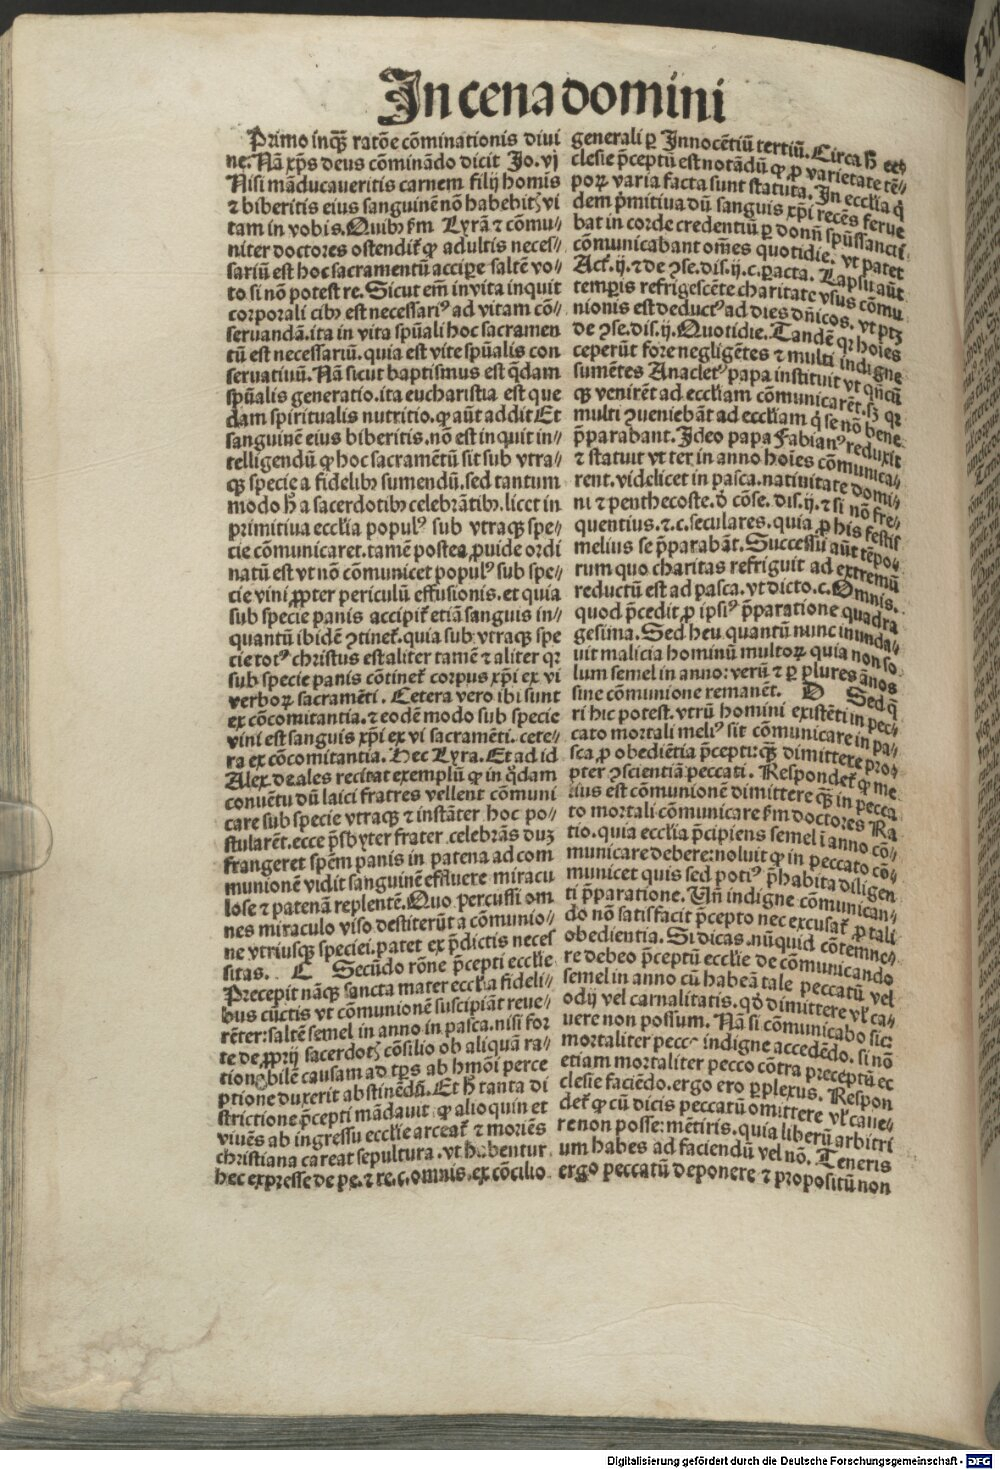 In cena domini
Primo inqꝫ ratōe cōminationis diui
ne. Nā xp̄s deus cōminādo dicit Jo. vj
Nisi māducaueritis carnem filij homīs
⁊ biberitis eius sanguinē nō habebitꝭ vi
tam in vobis. Quibꝰ ẜm Lyrā ⁊ cōmu⸗
niter doctores ostendit̄ ꝙ adultis neces⸗
sariū est hoc sacramentū accipere saltē vo⸗
to si nō potest re. Sicut em̄ in vita inquit
corporali cibꝰ est necessariꝰ ad vitam cō⸗
seruandā. ita in vita sp̄uali hoc sacramen
tū est necessariū. quia est vite sp̄ualis con
seruatiuū. Nā sicut baptismus est q̄dam
sp̄ualis generatio. ita eucharistia est que
dam spiritualis nutritio. ꝙ aūt addit Et
sanguinē eius biberitis. nō est inquit in⸗
telligendū ꝙ hoc sacramētū sit sub vtra⸗
qꝫ specie a fidelibꝰ sumendū. sed tantum
modo h̄ a sacerdotibꝰ celebrātibꝰ. licet in
primitiua eccl̄ia populꝰ sub vtraqꝫ spe⸗
cie cōmunicaret. tamē postea ꝓuide ordi
natū est vt nō cōmunicet populꝰ sub spe⸗
cie vini ꝓpter periculū effusionis. et quia
sub specie panis accipit̄ etiā sanguis in⸗
quantū ibidē ꝯtinet̄. quia sub vtraqꝫ spe
cie totꝰ christus est aliter tamē ⁊ aliter qꝛ
sub specie panis cōtinet̄ corpus xp̄i ex vi
verboꝝ sacramēti. Cetera vero ibi sunt
ex cōcomitantia. ⁊ eodē modo sub specie
vini est sanguis xp̄i ex vi sacramēti. cete⸗
ra ex cōcomitantia. Hec Lyra. Et ad id
Alex. de ales recitat exemplū ꝙ in q̊dam
conuētu dū laici fratres vellent cōmuni
care sub specie vtraqꝫ ⁊ instāter hoc po⸗
stularēt. ecce p̄sbyter frater celebrās duꝫ
frangeret spēm panis in patena ad com
munionē vidit sanguinē effluere miracu
lose ⁊ patenā replentē. Quo percussi om
nes miraculo viso destiterūt a cōmunio⸗
ne vtriusqꝫ speciei. patet ex p̄dictis neces
sitas. C Secūdo rōne p̄cepti eccl̄ie
Precepit nāqꝫ sancta mater eccl̄ia fideli⸗
bus cūctis vt cōmunionē suscipiāt reue⸗
rēter: saltē semel in anno in pasca. nisi for
te de ꝓprij sacerdotꝭ cōsilio ob aliquā ra⸗
tionabilē causam ad tp̄s ab hmōi perce
ptione duxerit abstinēdū. Et h̄ tanta di
strictione p̄cepti mādauit ꝙ alioquin et
viuēs ab ingressu eccl̄ie arceat̄ ⁊ moriēs
christiana careat sepultura. vt habentur
hec expresse de pe. ⁊ re. c. omnis. ex cōcilio
generali ꝑ Innocētiū tertiū. Circa h̄ ec⸗
clesie p̄ceptū est notādū ꝙ ꝓ varietate tē⸗
poꝝ varia facta sunt statuta. In eccl̄ia q̇
dem p̄mitiua dū sanguis xp̄i recēs ferue
bat in corde credentiū ꝑ donū sp̄ussancti
cōmunicabant om̄es quotidie. vt patet
Act. ij. ⁊ de ꝯse. dis. ij. c. ꝑacta. Lapsu aūt
temꝑis refrigescēte charitate vsus cōmu
nionis est deductꝰ ad dies dn̄icos. vt ptꝫ
de ꝯse. dis. ij. Quotidie. Tandē qꝛ hoīes
ceperūt fore negligētes ⁊ multi indigne
sumētes Anacletꝰ papa instituit vt qn̄cū
qꝫ venirēt ad eccl̄iam cōmunicarēt. sꝫ qꝛ
multi ꝯueniebāt ad eccl̄iam q̇ se nō bene
p̄parabant. Ideo papa Fabianꝰ reduxit
⁊ statuit vt ter in anno hoīes cōmunica⸗
rent. videlicet in pasca. natiuitate domi⸗
ni ⁊ penthecoste. de cōse. dis. ij. ⁊ si nō fre⸗
quentius. ⁊. c. seculares. quia ꝓ his festis
melius se p̄parabāt. Successu aūt tēpo⸗
rum quo charitas refriguit ad extremū
reductū est ad pasca. vt dicto. c. Omnis.
quod p̄cedit ꝓ ipsiꝰ p̄paratione quadra
gesima. Sed heu quantū nunc inunda⸗
uit malicia hominū multoꝝ quia non so
lum semel in anno: verū ⁊ ꝑ plures ānos
sine cōmunione remanēt. D Sed q̄
ri hic potest. vtrū homini existēti in pec⸗
cato mortali meliꝰ sit cōmunicare in pa⸗
sca ꝓ obediētia p̄cepti: qꝫ dimittere pro⸗
pter ꝯscientiā peccati. Respondet̄ ꝙ me
lius est cōmunionē dimittere qꝫ in pecca
to mortali cōmunicare ẜm doctores Ra
tio. quia eccl̄ia p̄cipiens semel ī anno cō⸗
municare debere: noluit ꝙ in peccato cō⸗
municet quis sed potiꝰ p̄habita diligen
ti p̄paratione. Vn̄ indigne cōmunican⸗
do nō satisfacit p̄cepto nec excusat̄ ꝓ tali
obedientia. Si dicas. nūquid cōtemne⸗
re debeo p̄ceptū eccl̄ie de cōmunicando
semel in anno cū habeā tale peccatū vel
odij vel carnalitatis. qd̓ dimittere vl̓ ca⸗
uere non possum. Nā si cōmunicabo sic:
mortaliter pecco indigne accedēdo. si nō
etiam mortaliter pecco cōtra preceptū ec
clesie faciēdo. ergo ero ꝑplexus. Respon
det̄ ꝙ cū dicis peccatū omittere vl̓ caue⸗
re non posse: mētiris. quia liberū arbitri
um habes ad faciendū vel nō. Teneris
ergo peccatū deponere ⁊ propositū non
Digitalisierung gefördert durch die Deutsche Forschungsgemeinschaft - DFG